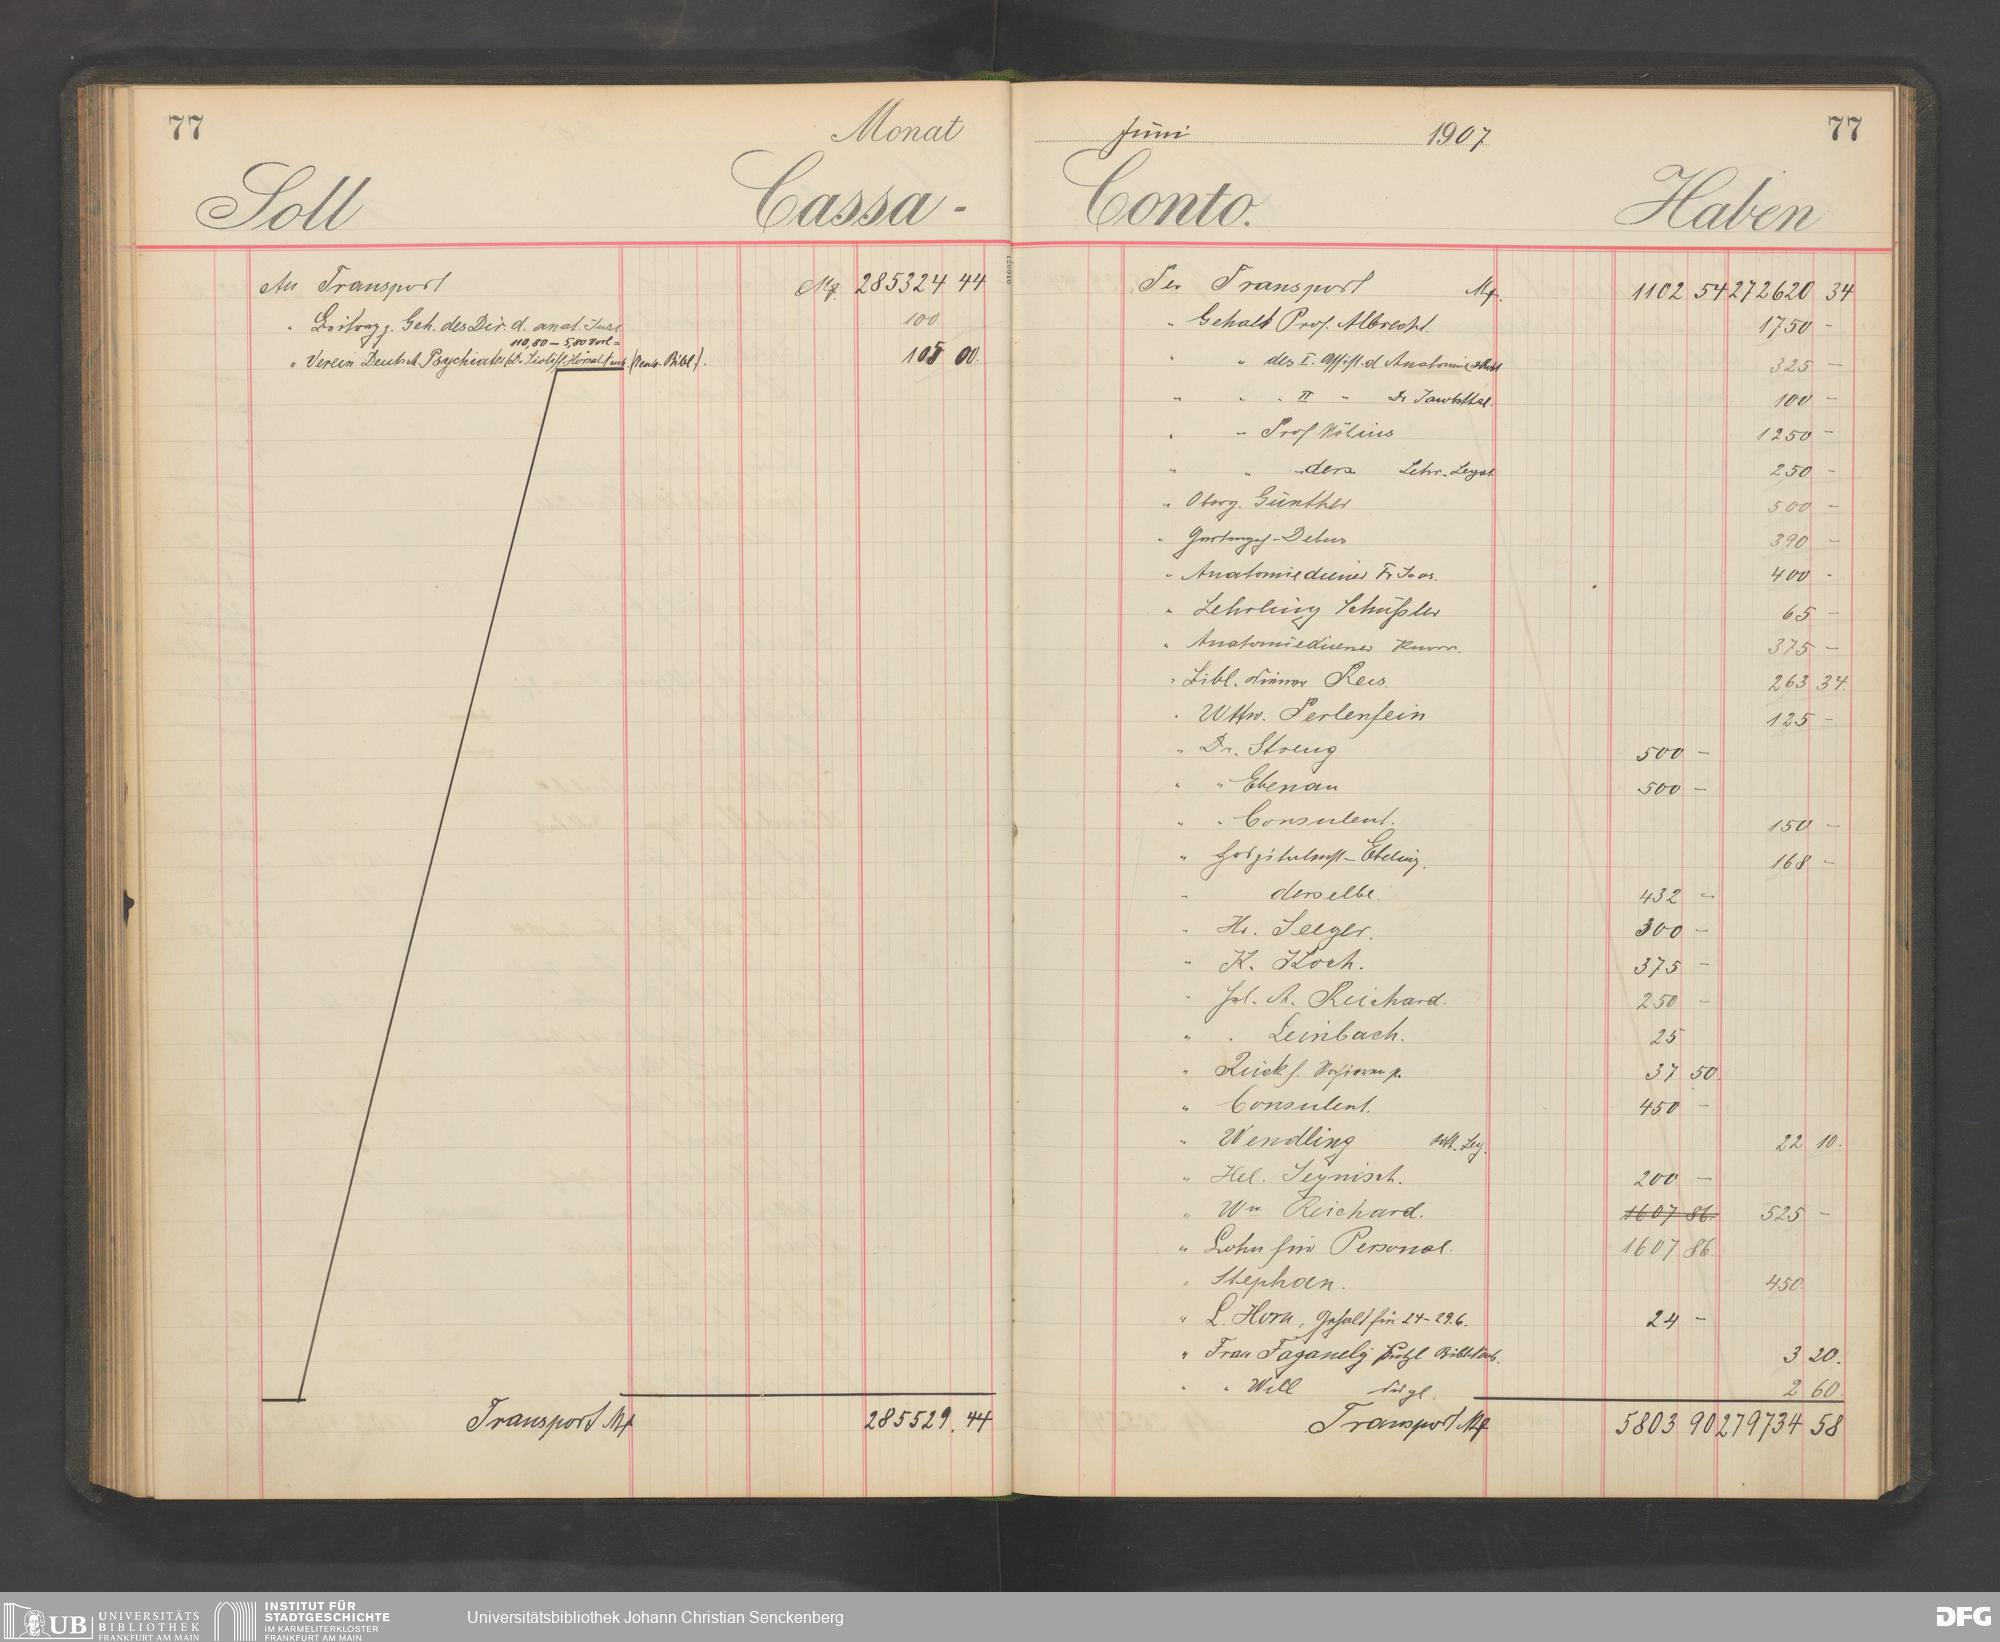 77
Monat
Soll
Cassa -
An Transport M. 285324 44
" Beitrag z. Geh. des Dir. d. anat. Inst. 100
110,80 — 5,80 Porto =
" Verein Deutsch. Psychiater (Senck. Bibl.). 105 00.
Transport M 285529. 44
Juni 1907
77
Conto.
Haben
Per Transport M. 1102 54 272620 34
" Gehalt Prof. Albrecht. 1750 -
" " des I. Assist. d Anatomie 325 -
" " " II " Dr 100 -
" " Prof Möbius 1250 -
" " ders. Lehr-Legat 250 -
" Oberg. Günther 500 -
" Debus 390 -
" Anatomiediener Fr. Joos. 400 -
" Lehrling Schüßler 65 -
" Anatomiediener Knorr. 375 -
" Bibl. diener Rees. 263 34.
" Wttw. Perlenfein 125 -
" Dr. Streng 500 -
" " Ebenau 500 -
" " Consulent. 150 -
" Hospitalmst - Ebeling. 168 -
" derselbe. 432 -
" Hr. Seeger. 300 -
" K. Koch. 375 -
" Frl. A. Reichard. 250 -
" " Leinbach. 25
" Rück f. 37 50
" Consulent. 450 -
" Wendling Leg. 22 10.
" Hel. Seynisch. 200 -
" Ww Reichard. 1607 86. 525 -
" Lohn für Personal. 1607 86
" Stephan. 450
" L. Horn, Gehalt für 24-29.6. 24 -
" Frau Faganely Putzl 3 20.
" " Will dsgl. 2 60.
Transport M 5803 90 279734 58
UB UNIVERSITÄTS
BIBLIOTHEK
FRANKFURT AM MAIN
INSTITUT FÜR
STADTGESCHICHTE
IM KARMELITERKLOSTER
FRANKFURT AM MAIN
Universitätsbibliothek Johann Christian Senckenberg
DFG